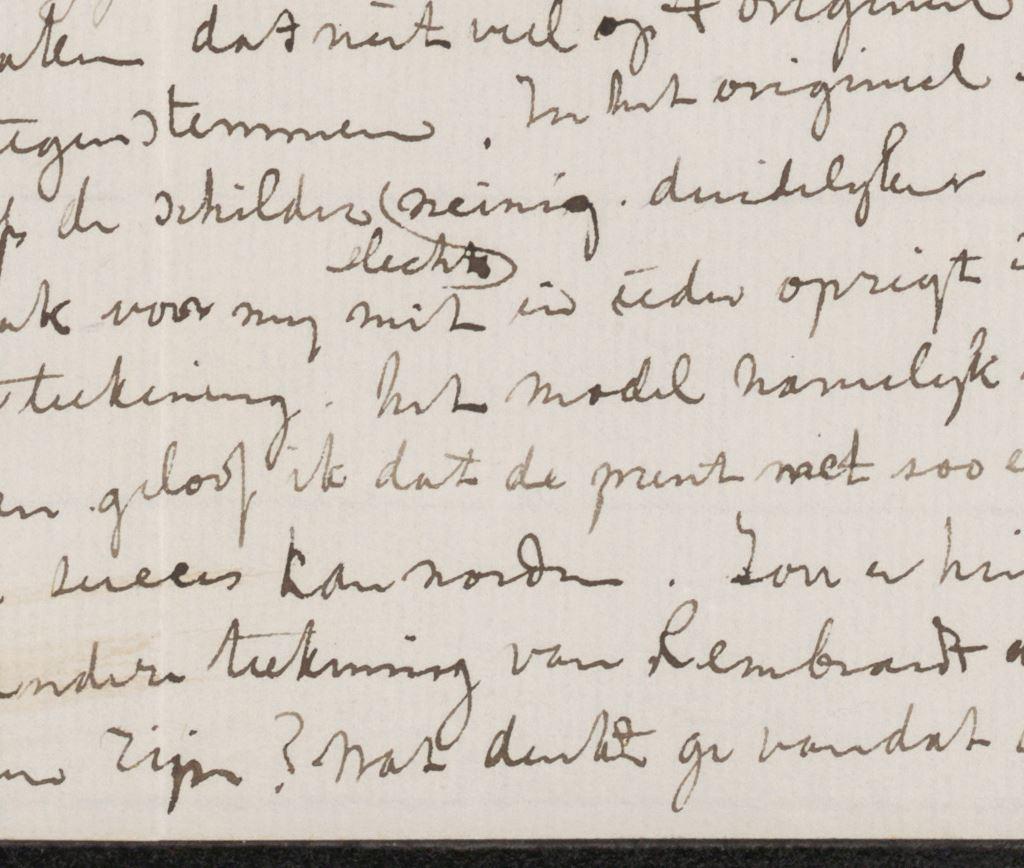 dat niet veel op 't origineel
tegen stemmen. In het origineel
de schilder (weinig. duidelijker
slechts)
ak voor my niet in ieder opzigt
teekening. het model namelijk
en geloof ik dat de prent niet zoo
succes kan worden. Zou er hi
andere teekening van Rembrandt
zijn? Wat denkt ge van dat